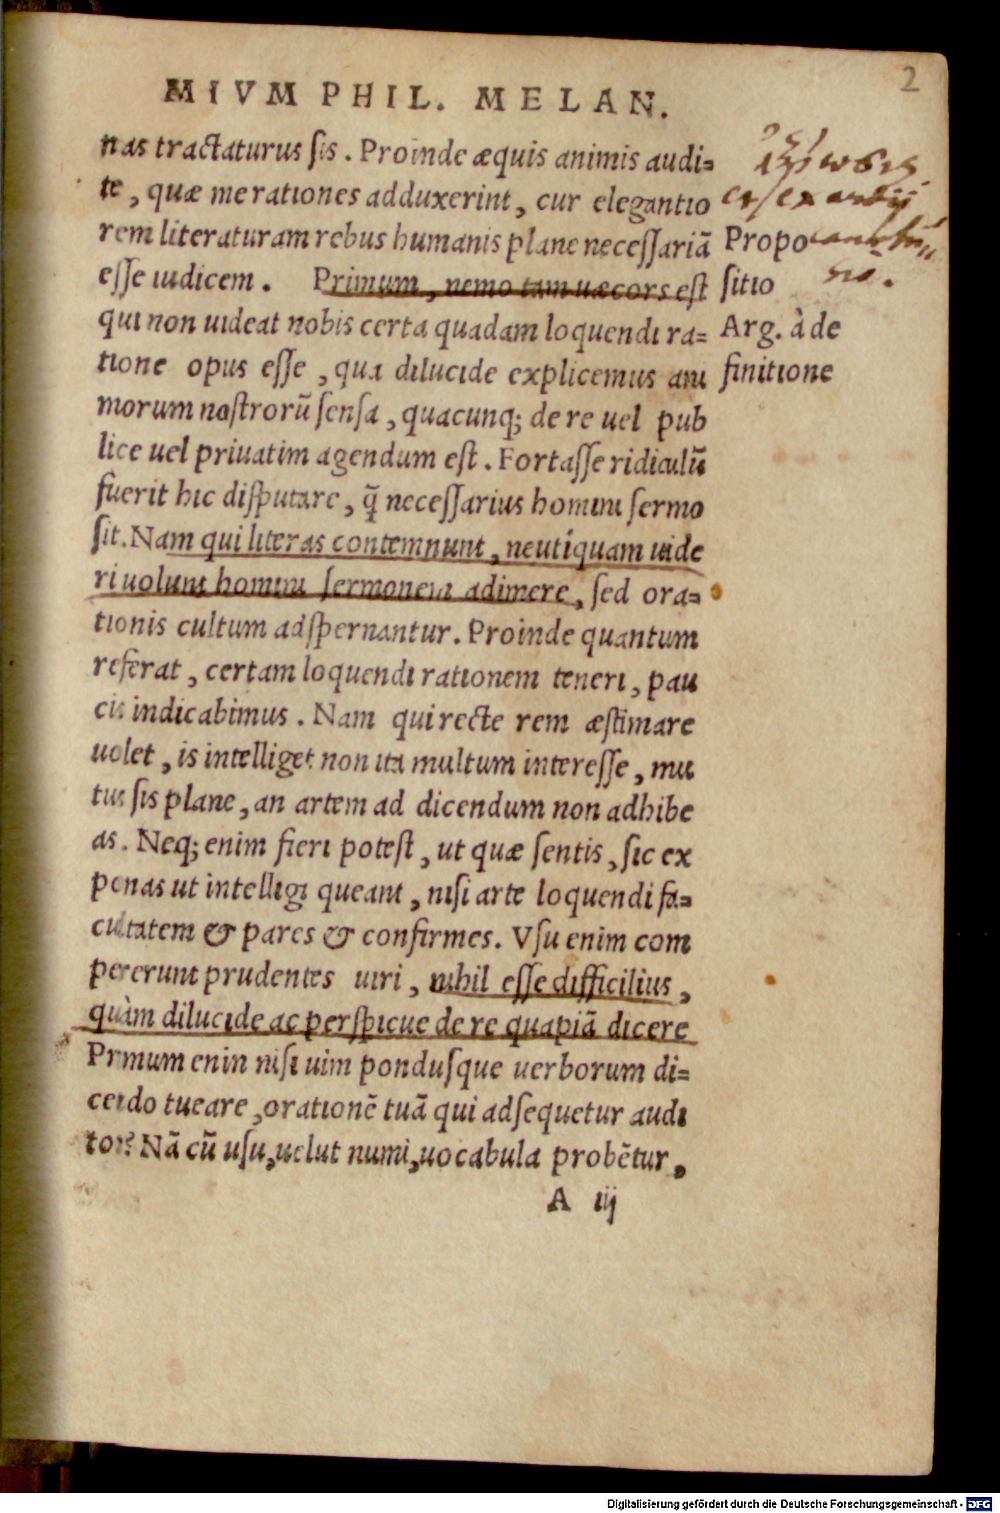 2
MIVM PHIL. MELAN.
nas tractaturus sis. Proinde æquis animis audi=
te, quæ me rationes adduxerint, cur elegantio
rem literaturam rebus humanis plane necessariã
esse iudicem. Primum, nemo tam uæcors est
qui non uideat nobis certa quadam loquendi ra=
tione opus esse, qua dilucide explicemus ani
morum nostrorũ sensa, quacunq; de re uel pub
lice uel priuatim agendum est. Fortasse ridiculũ
fuerit hic disputare, q̃ necessarius homini sermo
sit. Nam qui literas contemnunt, neutiquam uide
ri uolunt homini sermonem adimere, sed ora=
tionis cultum adspernantur. Proinde quantum
referat, certam loquendi rationem teneri, pau
cis indicabimus. Nam qui recte rem æstimare
uolet, is intelliget non ita multum interesse, mu
tus sis plane, an artem ad dicendum non adhibe
as. Neq; enim fieri potest, ut quæ sentis, sic ex
ponas ut intelligi queant, nisi arte loquendi fa=
cultatem & pares & confirmes. Vsu enim com
pererunt prudentes uiri, nihil esse difficilius,
quàm dilucide ac perspicue de re quapiã dicere
Primum enin nisi uim pondusque uerborum di=
cendo tueare, orationẽ tuã qui adsequetur audi
tor? Nã cũ usu, uelut numi, uocabula probẽtur,
A iij
Propo
sitio
Arg. à de
finitione
Digitalisierung gefördert durch die Deutsche Forschungsgemeinschaft - DFG